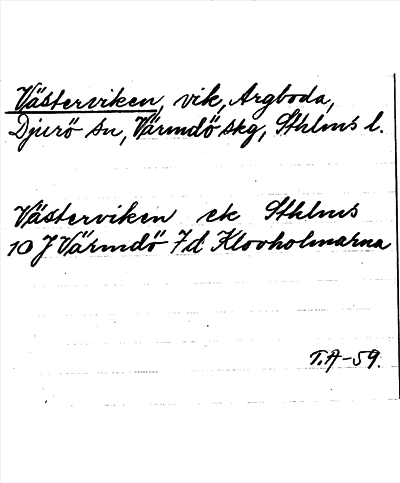 Västerviken, vik, Argboda,
Djurö sn, Värmdö skg, Sthlms l.
Västerviken ek Sthlms
10 J Värmdö 7d Klovholmarna
T.A-59.